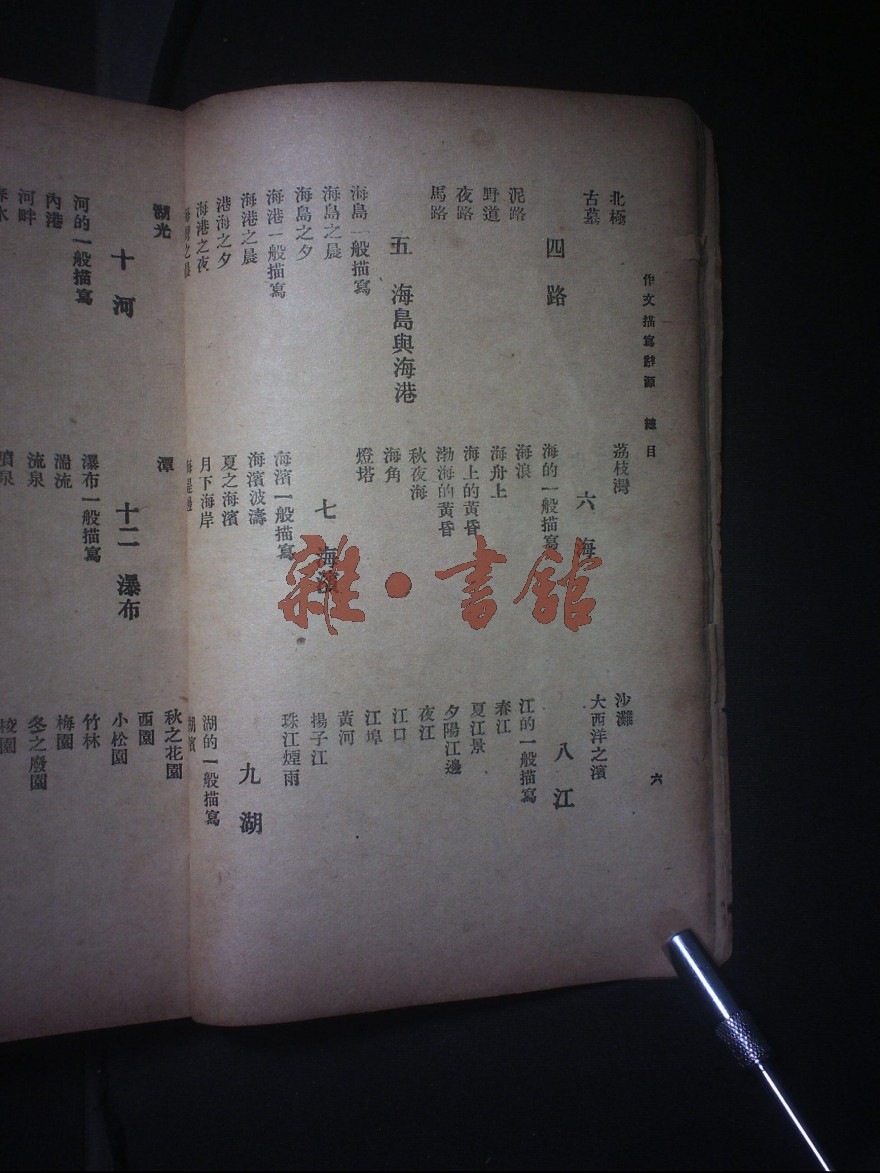 作文描寫辭源 總目
六
北極
古墓
四 路
泥路
野道
夜路
馬路
五 海島與海港
海島一般描寫
海島之晨
海島之夕
海港一般描寫
海港之晨
港海之夕
海港之夜
荔枝灣
六 海
海的一般描寫
海浪
海舟上
海上的黃昏
渤海的黃昏
秋夜海
海角
燈塔
七 海濱
海濱一般描寫
海濱波濤
夏之海濱
月下海岸
沙灘
大西洋之濱
八 江
江的一般描寫
春江
夏江景
夕陽江邊
夜江
江口
江埠
黃河
揚子江
珠江煙雨
九 湖
湖的一般描寫
湖濱
湖光
十 河
河的一般描寫
內港
河畔
春水
潭
十二 瀑布
瀑布一般描寫
湍流
流泉
噴泉
秋之花園
西園
小松園
竹林
梅園
冬之廢園
雜·書館